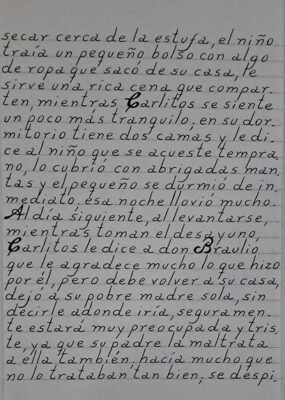 secar cerca de la estufa, el niño
traía un pequeño bolso con algo
de ropa que sacó de su casa, le
sirve una rica cena que compar-
ten, mientras Carlitos se siente
un poco más tranquilo, en su dor-
mitorio tiene dos camas y le di-
ce al niño que se acueste tempra
no, lo cubrió con abrigadas man-
tas y el pequeño se durmió de in-
mediato, esa noche llovio mucho.
Al día siguiente, al levantarse,
mientras toman el desayuno,
Carlitos le dice a don Braulio
que le agradece mucho lo que hizo
por él, pero debe volver a su casa,
dejó a su pobre madre sola, sin
decirle adonde iría, seguramen-
te estará muy preocupada y tris
te, ya que su padre la maltrata
a ella también, hacía mucho que
no lo trataban tan bien, se despi-